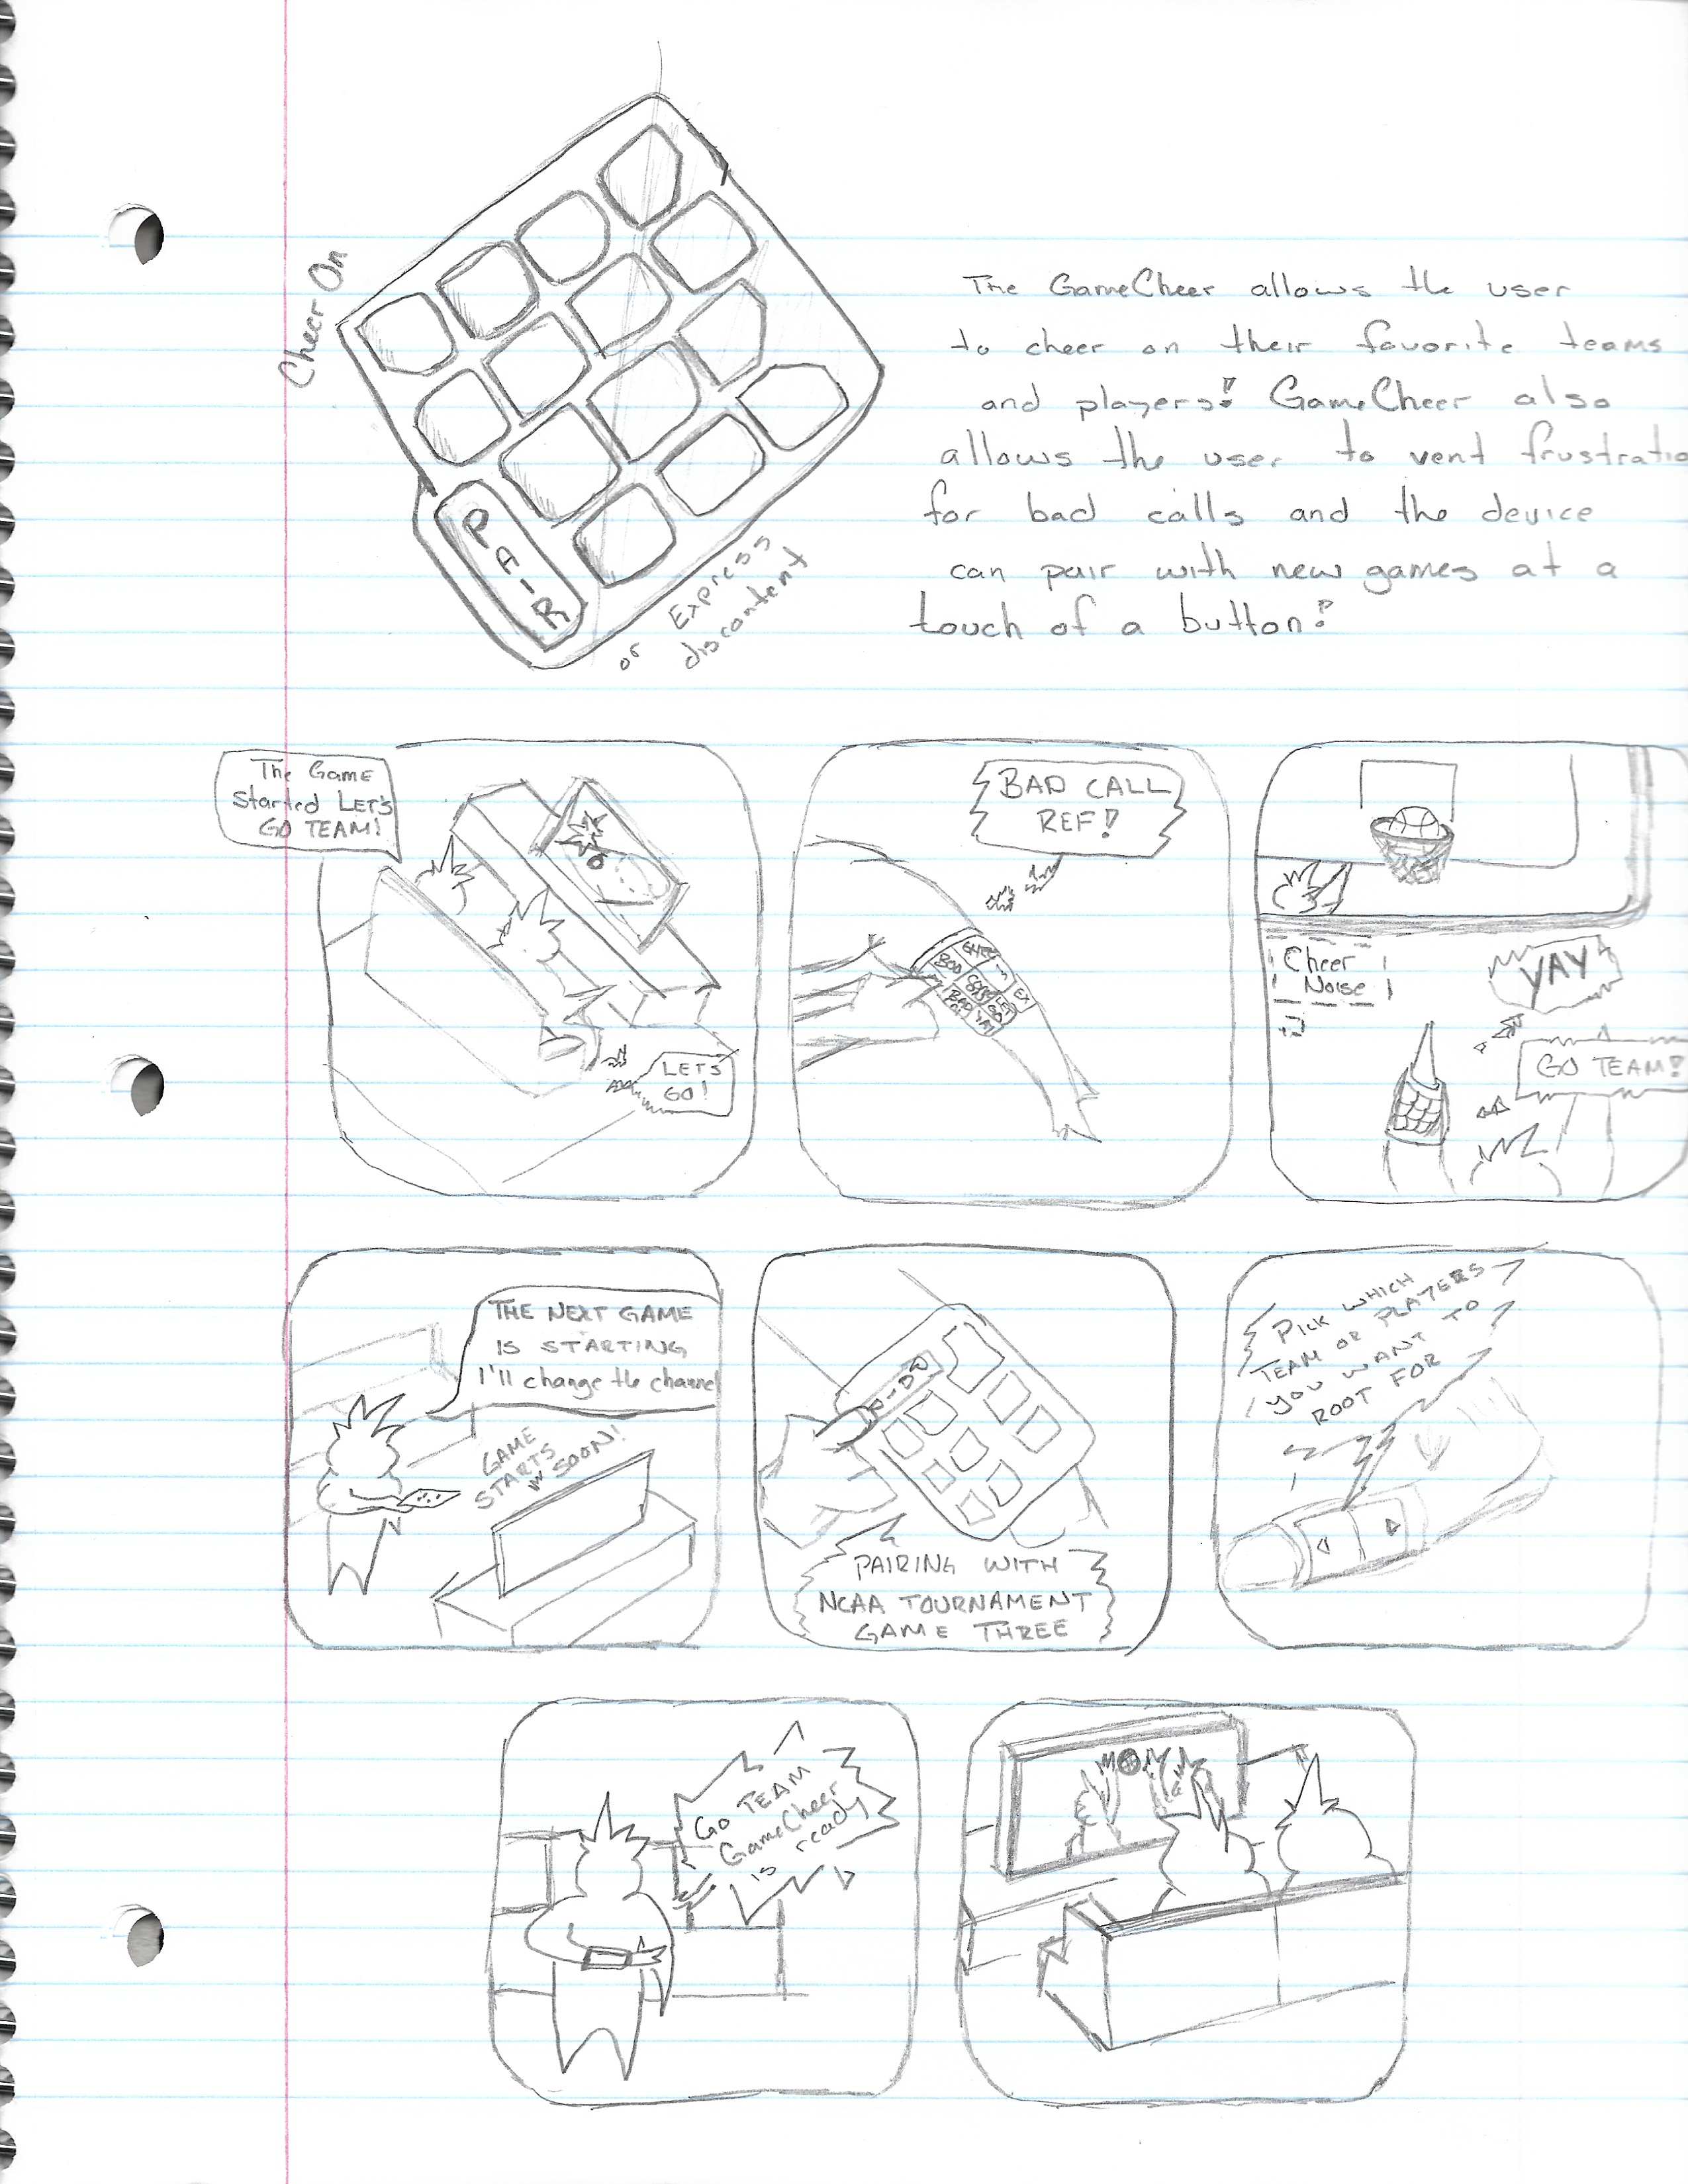 Cheer On
PAIR
or Express
discontent
The GameCheer allows the user
to cheer on their favorite teams
and players! GameCheer also
allows the user to vent frustratio
for bad calls and the device
can pair with new games at a
touch of a button!
The Game
Started LET'S
GO TEAM!
LETS
GO!
BAD CALL
REF!
BOO
BAD
YAY
Cheer
Noise
YAY
GO TEAM!
THE NEXT GAME
IS STARTING
I'll change the channel
GAME
STARTS
SOON!
PAIR
PAIRING WITH
NCAA TOURNAMENT
GAME THREE
PICK WHICH
TEAM OR PLAYERS
YOU WANT TO
ROOT FOR
GO TEAM
GameCheer
is ready